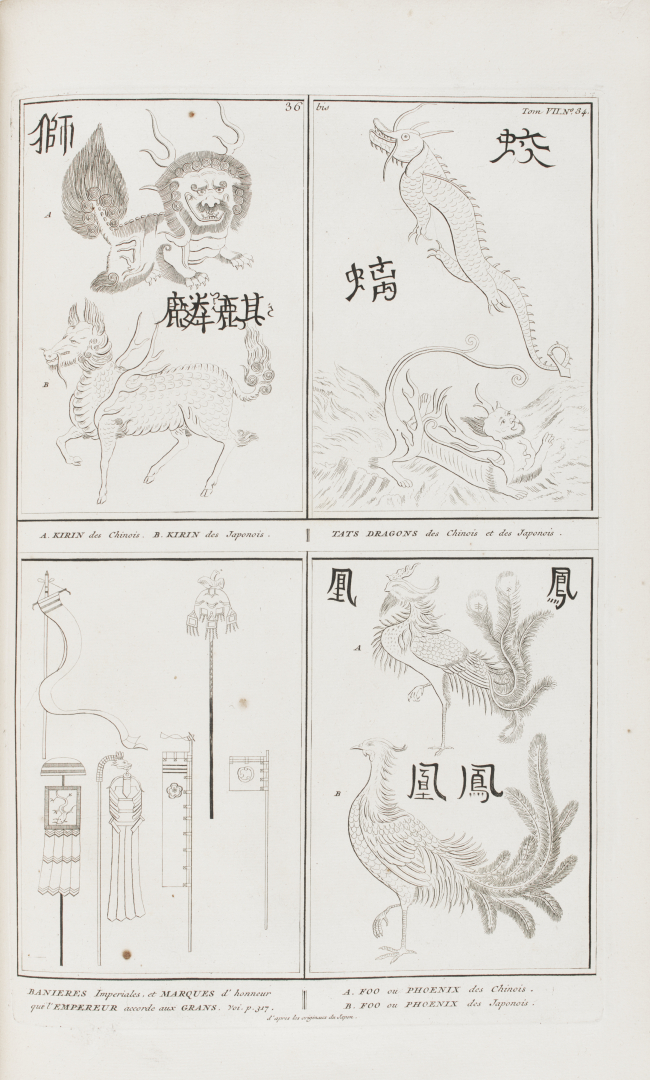 36 bis
Tom. VII. Nº. 34.
獅
A
麒麟
B
蛟
螭
A. KIRIN des Chinois. B. KIRIN des Japonois.
TATS DRAGONS des Chinois et des Japonois.
凰
鳳
A
B
凰 鳳
BANIERES Imperiales, et MARQUES d'honneur
que l'EMPEREUR accorde aux GRANS. Voi. p. 317.
A. FOO ou PHOENIX des Chinois.
B. FOO ou PHOENIX des Japonois.
d'apres les originaux du Japon.